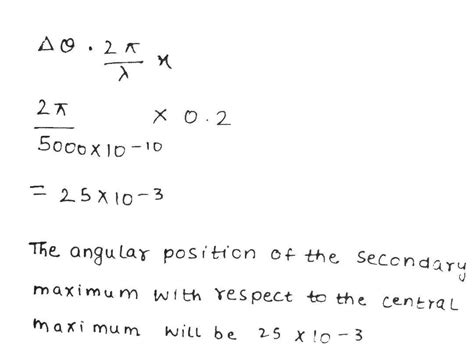 Δθ . 2π/λ x
2π/5000×10-10 × 0.2
= 25×10-3
The angular position of the secondary
maximum with respect to the central
maximum will be 25 ×10-3